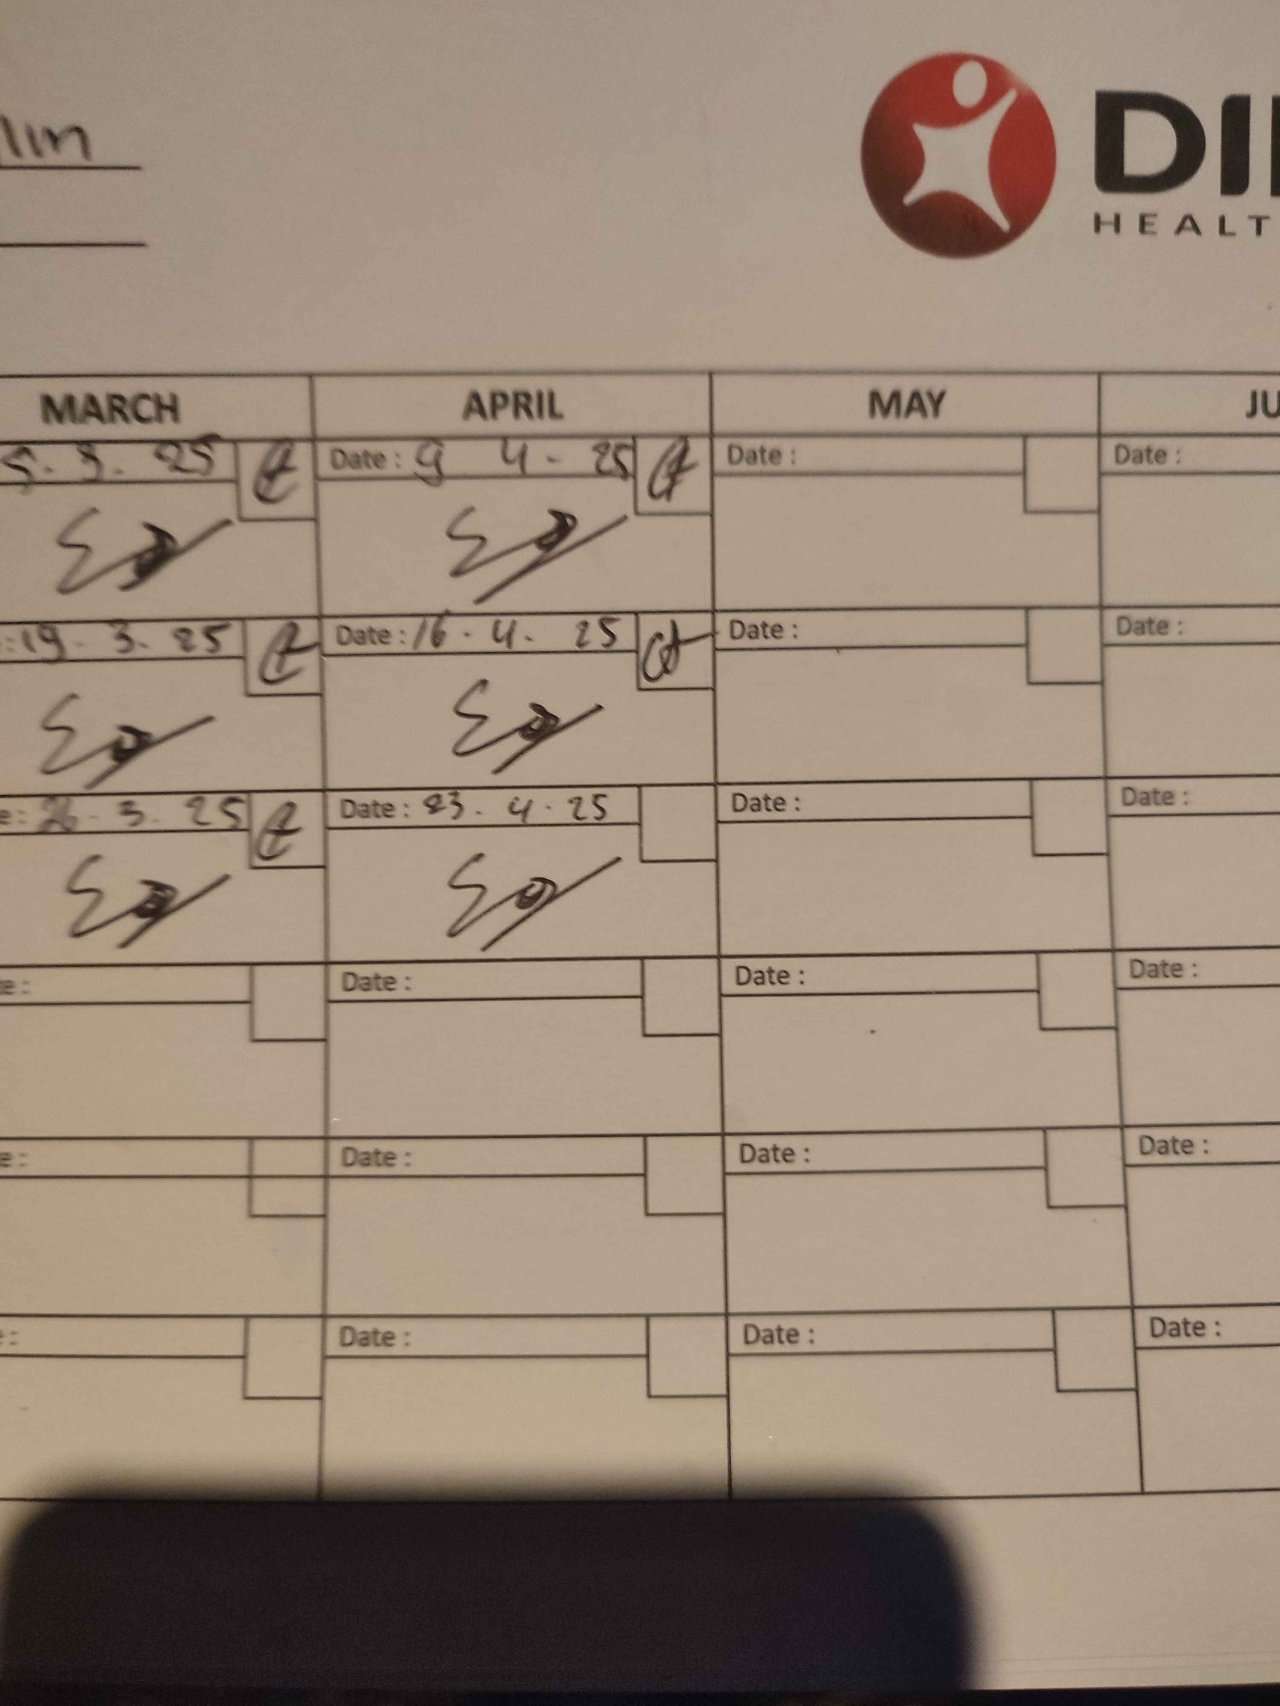 lin
DI
HEALT
MARCH APRIL MAY JU
5. 3. 25 Date : 9 4 - 25 Date : Date :
: 19 - 3. 25 Date : 16 . 4. 25 Date : Date :
e : 26 . 3. 25 Date : 23 . 4 . 25 Date : Date :
e : Date : Date : Date :
e : Date : Date : Date :
: Date : Date : Date :